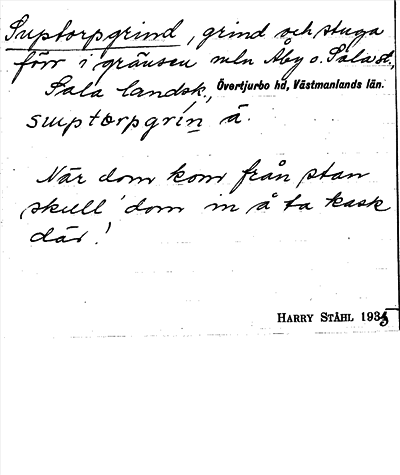 Suptorpgrind, grind och stuga
förr i gränsen mln Åby o. Sala st.,
Sala landsk., Övertjurbo hd, Västmanlands län.
suptorpgrin̲ å.
När dom kom från stan
skull' dom in å ta kask
där!
HARRY STÅHL 1935